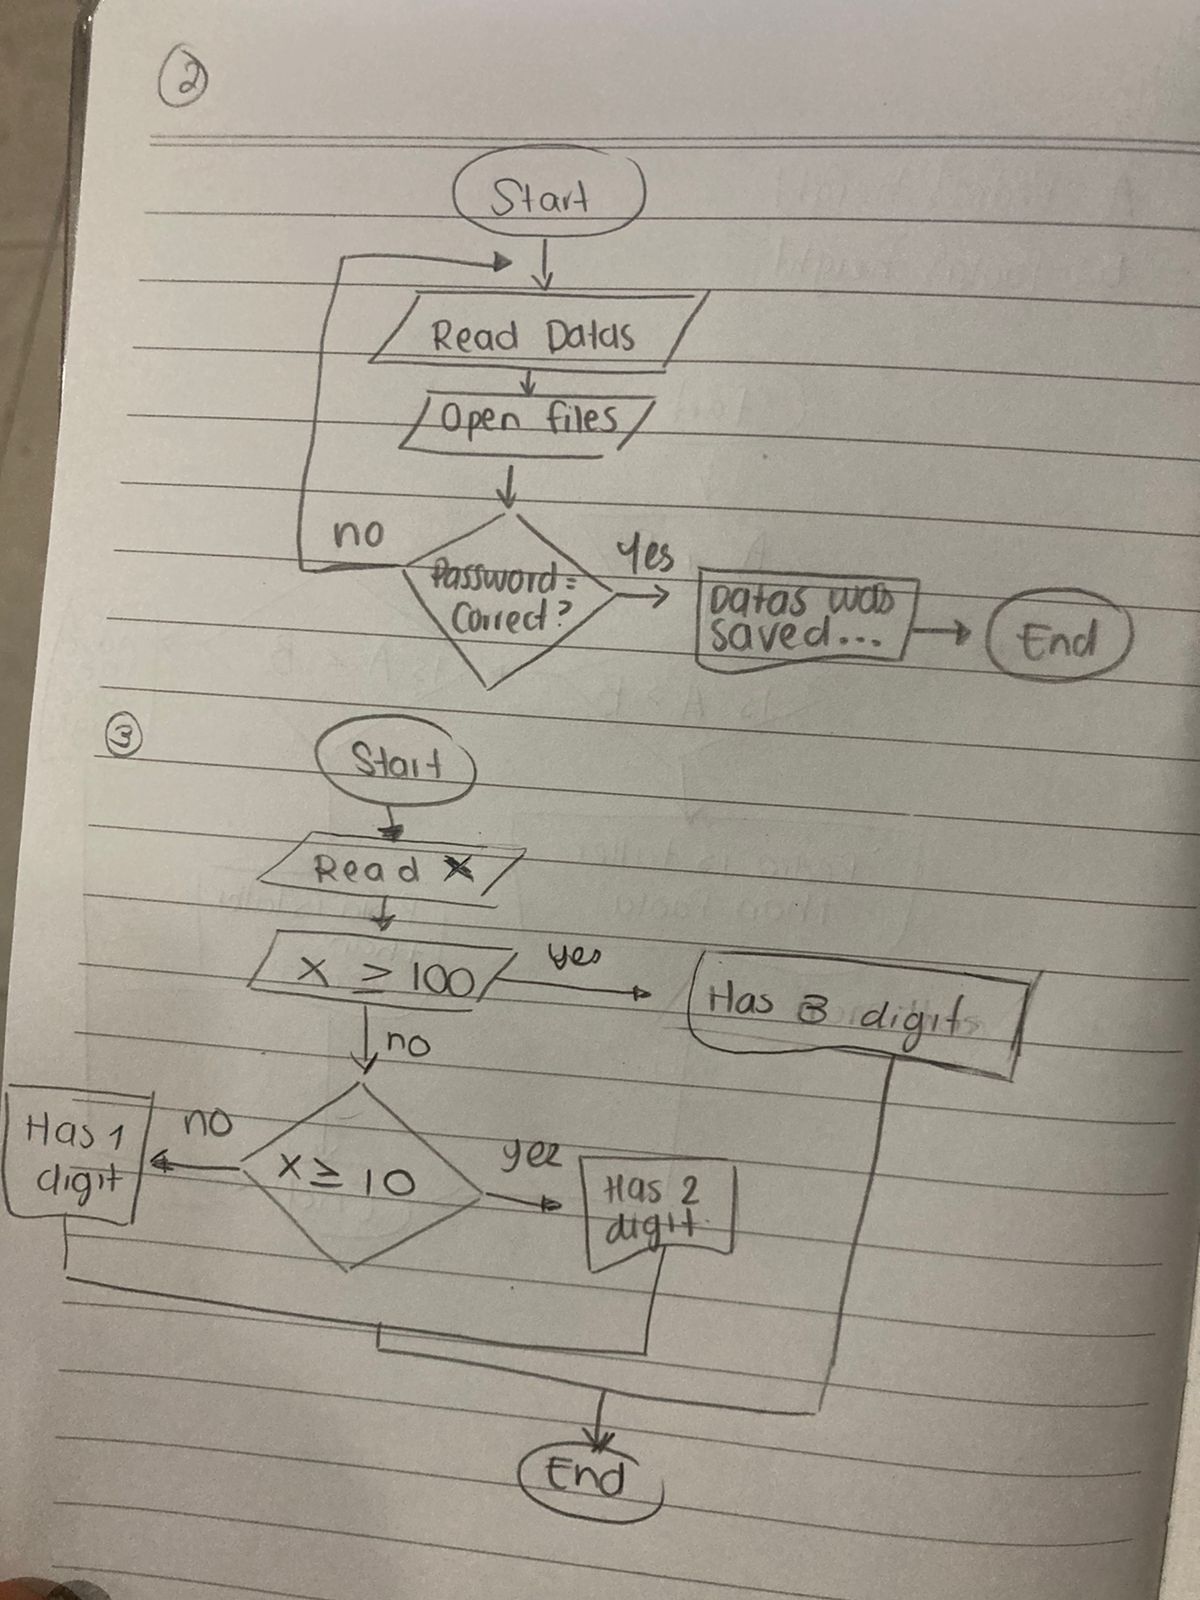 2
Start
Read Datas
Open files
no
Yes
Password =
Correct?
Datas was
saved...
End
3
Start
Read x
x ≥ 100
yes
Has 3 digits
no
Has 1
digit
no
x ≥ 10
yes
Has 2
digit
End